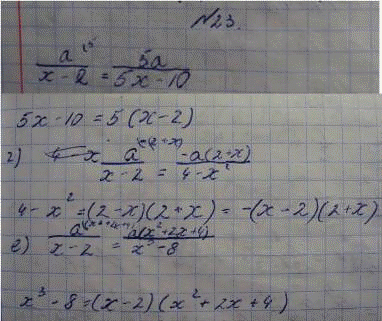 №23.
a^(5 / x-2 = 5a / 5x-10
5x-10 = 5(x-2)
г) a^(-(2+x) / x-2 = -a(2+x) / 4-x²
4-x² = (2-x)(2+x) = -(x-2)(2+x)
е) a / x-2 = a(x²+2x+4) / x³-8
x³-8 = (x-2)(x²+2x+4)